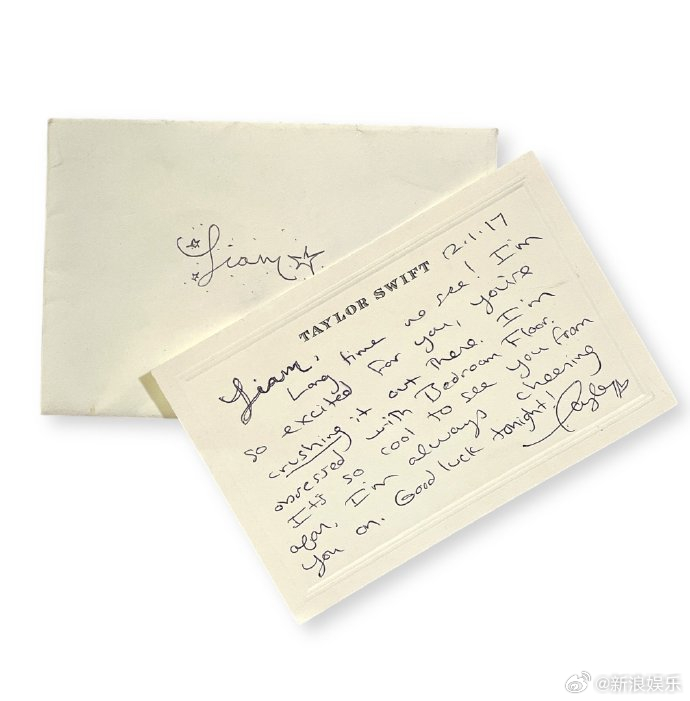 Liam
TAYLOR SWIFT
12.1.17
Liam,
Long time no see! I'm
so excited for you, you're
crushing it out there. I'm
obsessed with Bedroom Floor.
It's so cool to see you from
afar, I'm always cheering
you on. Good luck tonight!
Taylor
@新浪娱乐